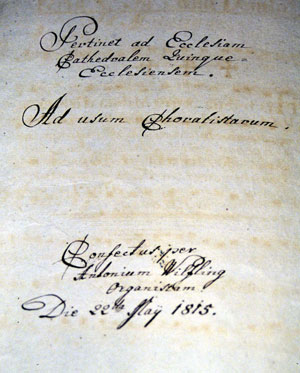 Pertinet ad Ecclesiam
Cathedralem Quinque-
Ecclesiensem.
Ad usum Choralistarum.
Confectus per
Antonium Wilfling
Organistam.
Die 22ta Maÿ 1815.